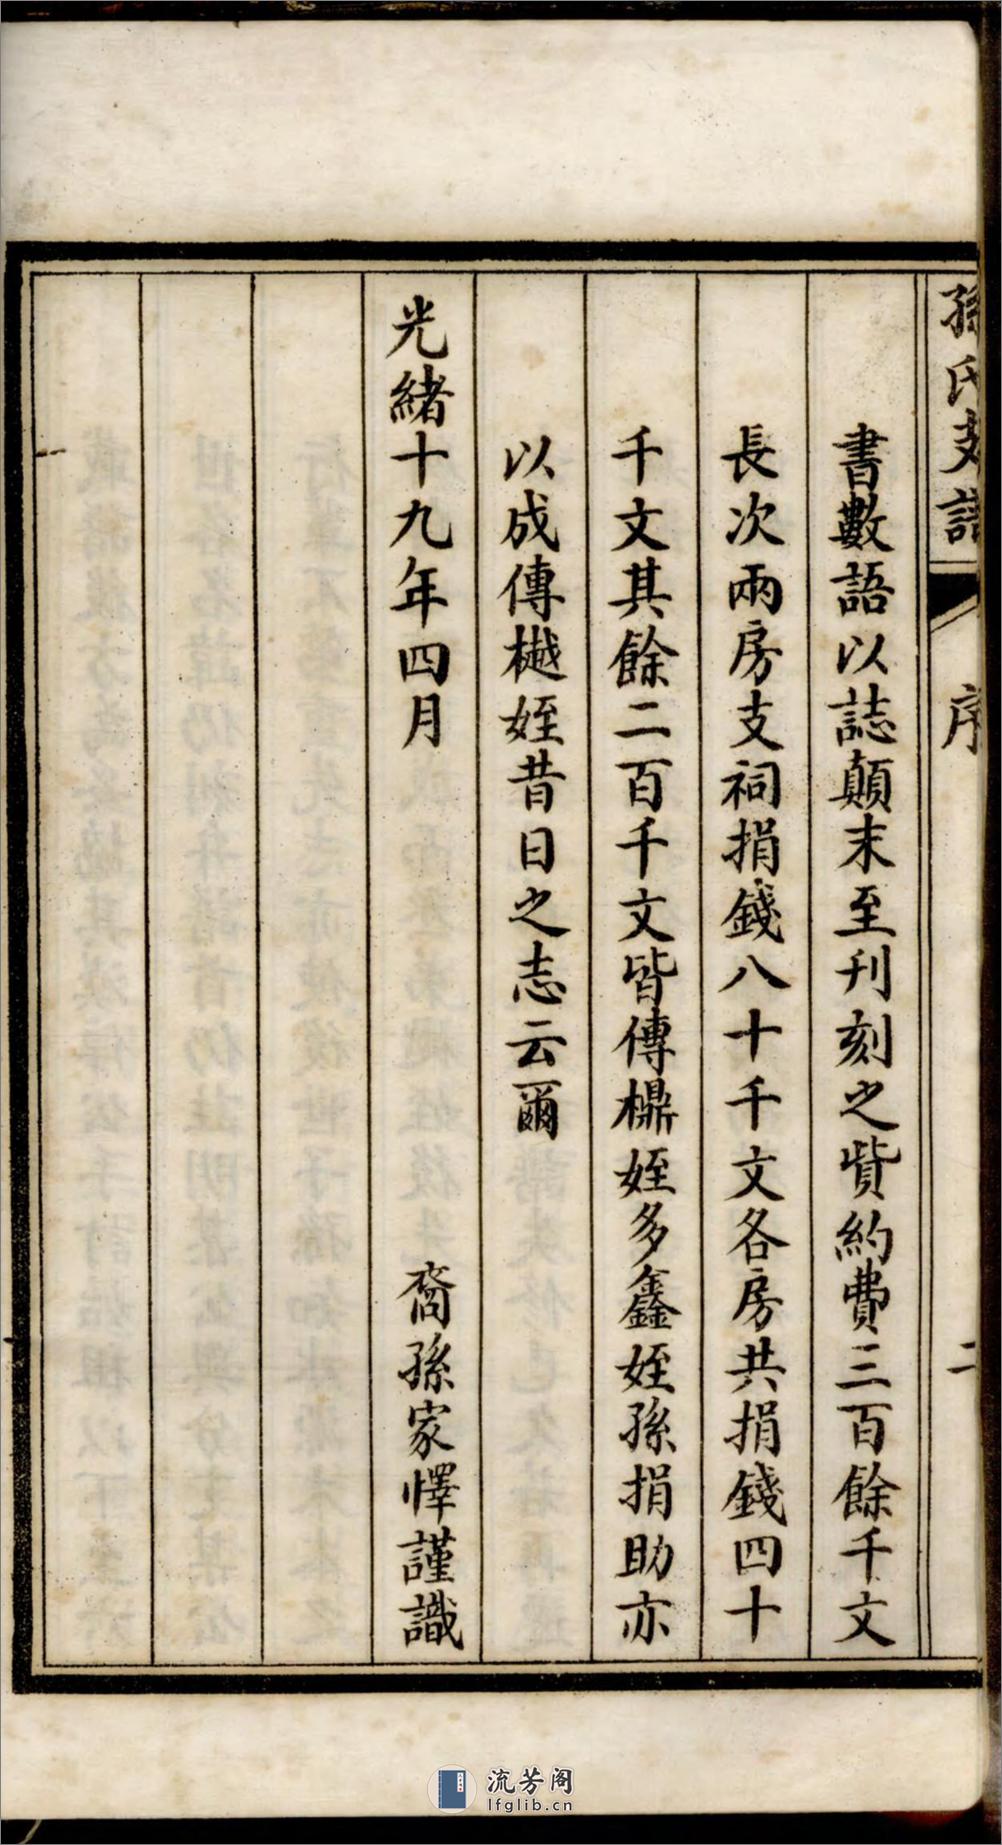 孫氏支譜
序
二
書數語以誌顛末至刊刻之貲約費三百餘千文
長次兩房支祠捐錢八十千文各房共捐錢四十
千文其餘二百千文皆傳㯲姪多鑫姪孫捐助亦
以成傳樾姪昔日之志云爾
光緒十九年四月
裔孫家懌謹識
流芳阁
lfglib.cn